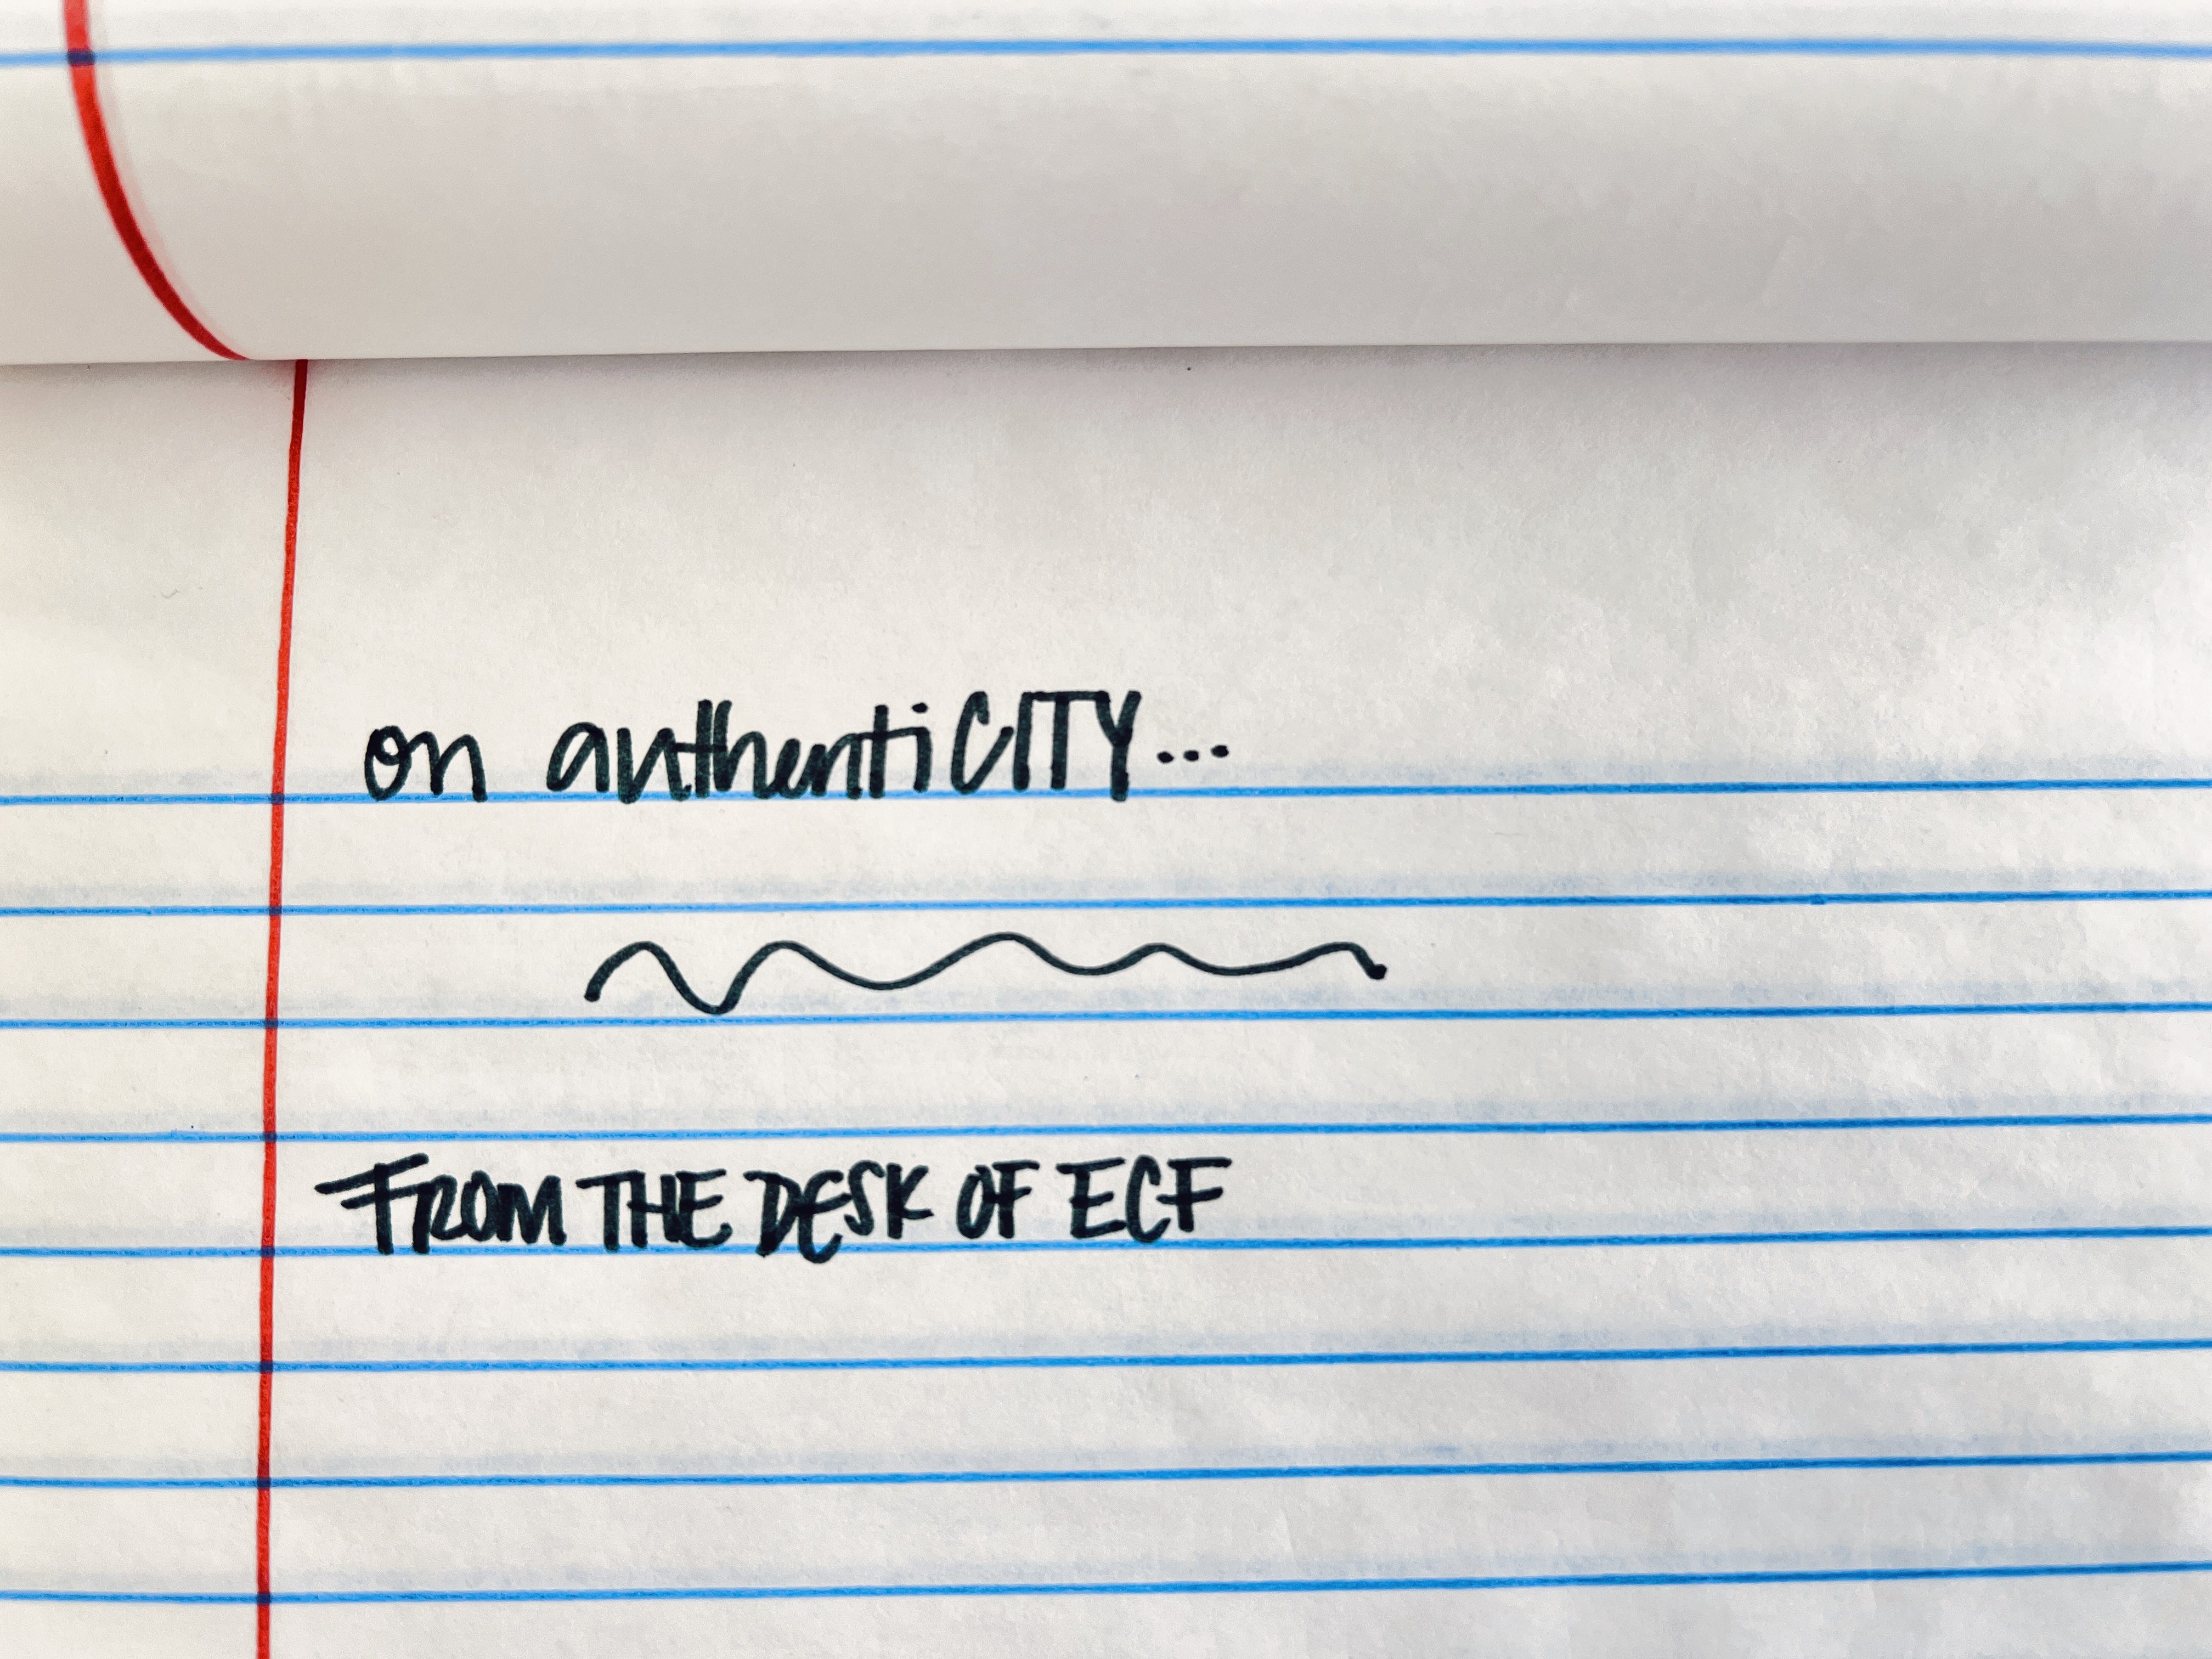 on authentiCITY...
FROM THE DESK OF ECF